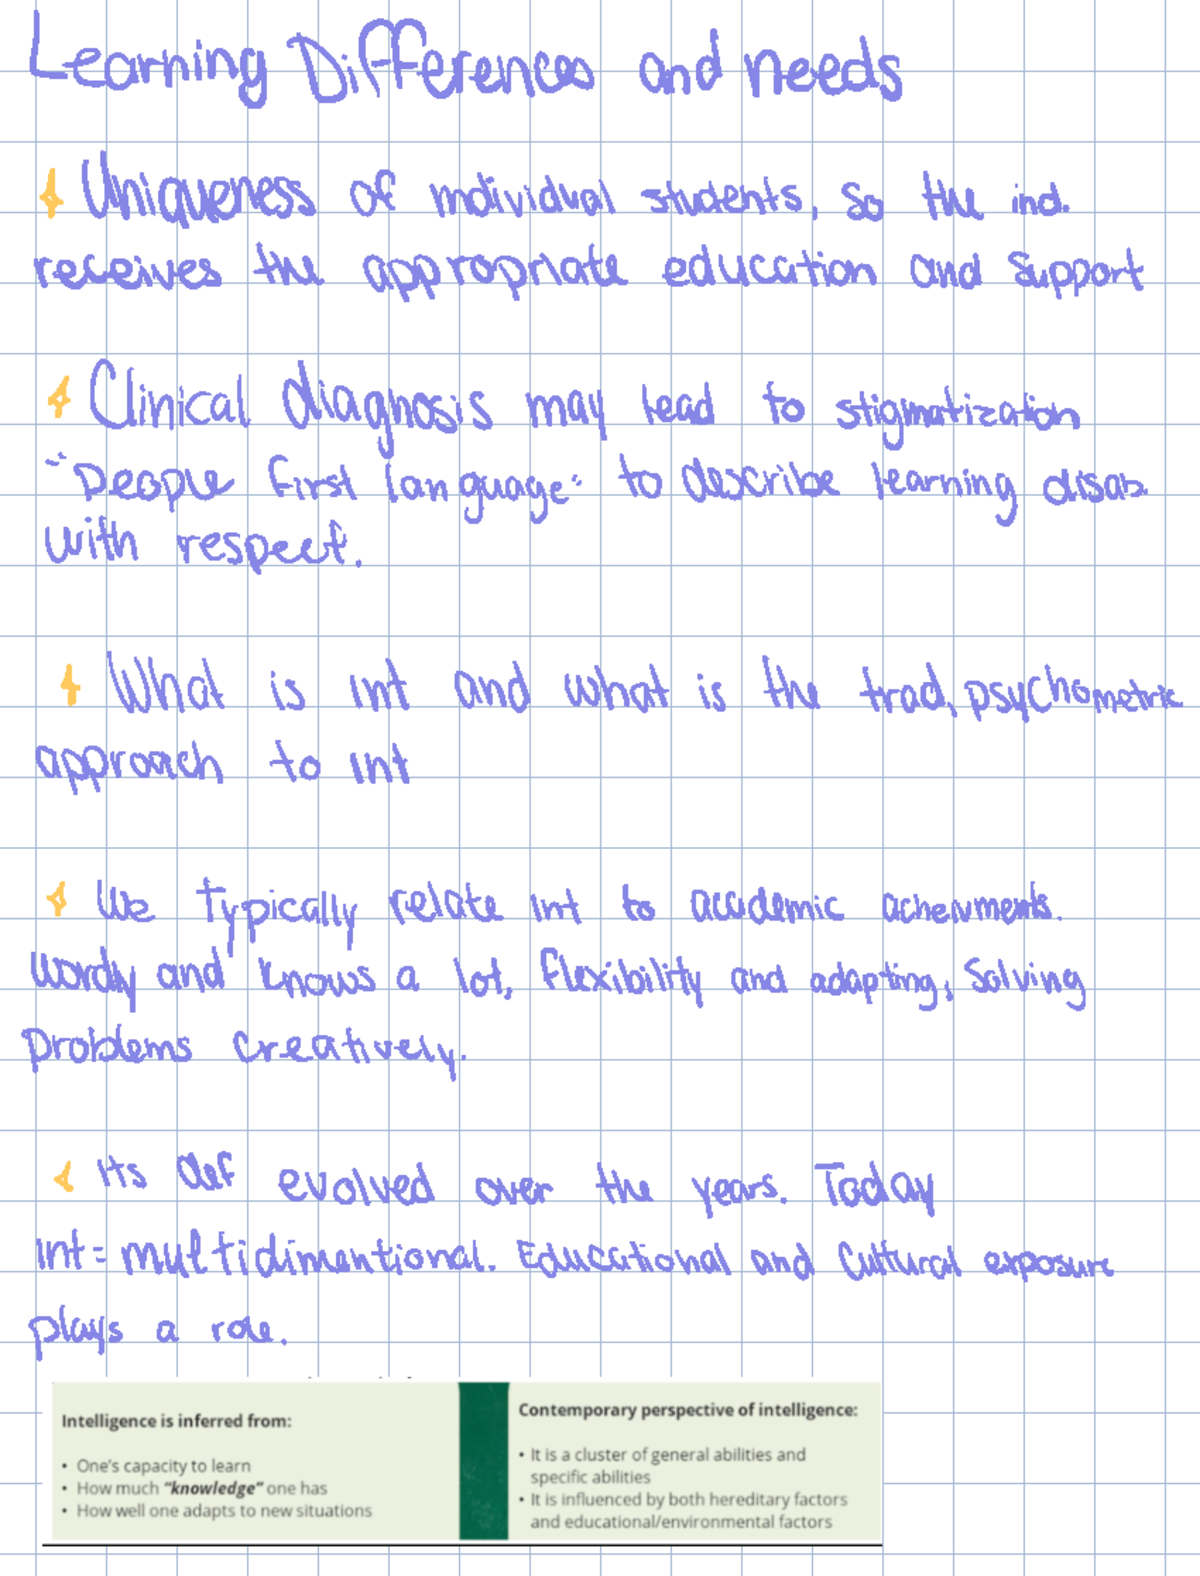 Learning Differences and needs
Uniqueness of individual students, so the ind.
receives the appropriate education and support
Clinical diagnosis may lead to stigmatization
"People first language" to describe learning disab.
with respect.
What is int and what is the trad, psychometric
approach to int
We typically relate int to academic acheivments.
Wordy and knows a lot, flexibility and adapting, solving
problems creatively.
Its def evolved over the years. Today
int= multidimentional. Educational and Cultural exposure
plays a role.
Intelligence is inferred from:
• One's capacity to learn
• How much "knowledge" one has
• How well one adapts to new situations
Contemporary perspective of intelligence:
• It is a cluster of general abilities and
specific abilities
• It is influenced by both hereditary factors
and educational/environmental factors